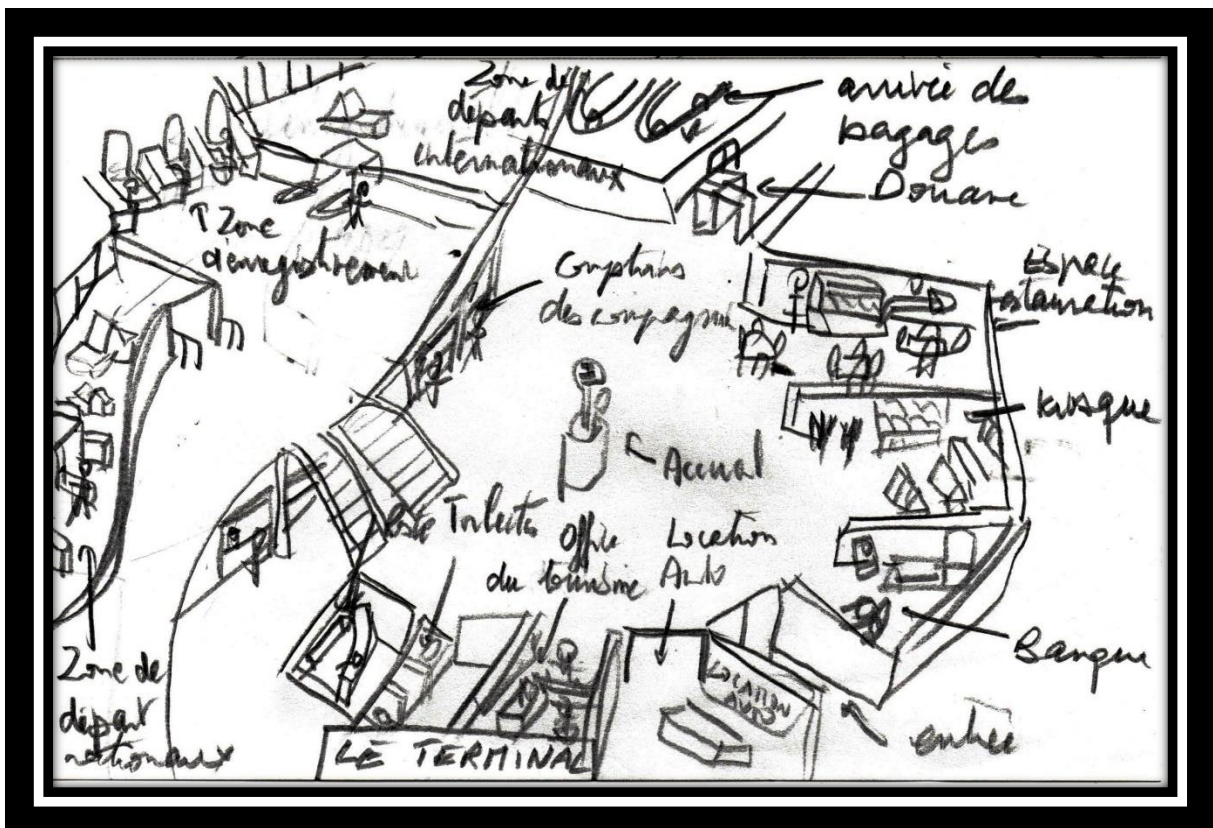 Zone de
départ
internationaux
arrivée des
bagages
Douane
Zone
d'enregistrement
Comptoirs
des compagnies
Espace
restauration
kiosque
Accueil
Poste
Toilettes
Office
du tourisme
Location
Auto
LOCATION
AUTO
Banque
entrée
Zone de
départ
nationaux
LE TERMINAL